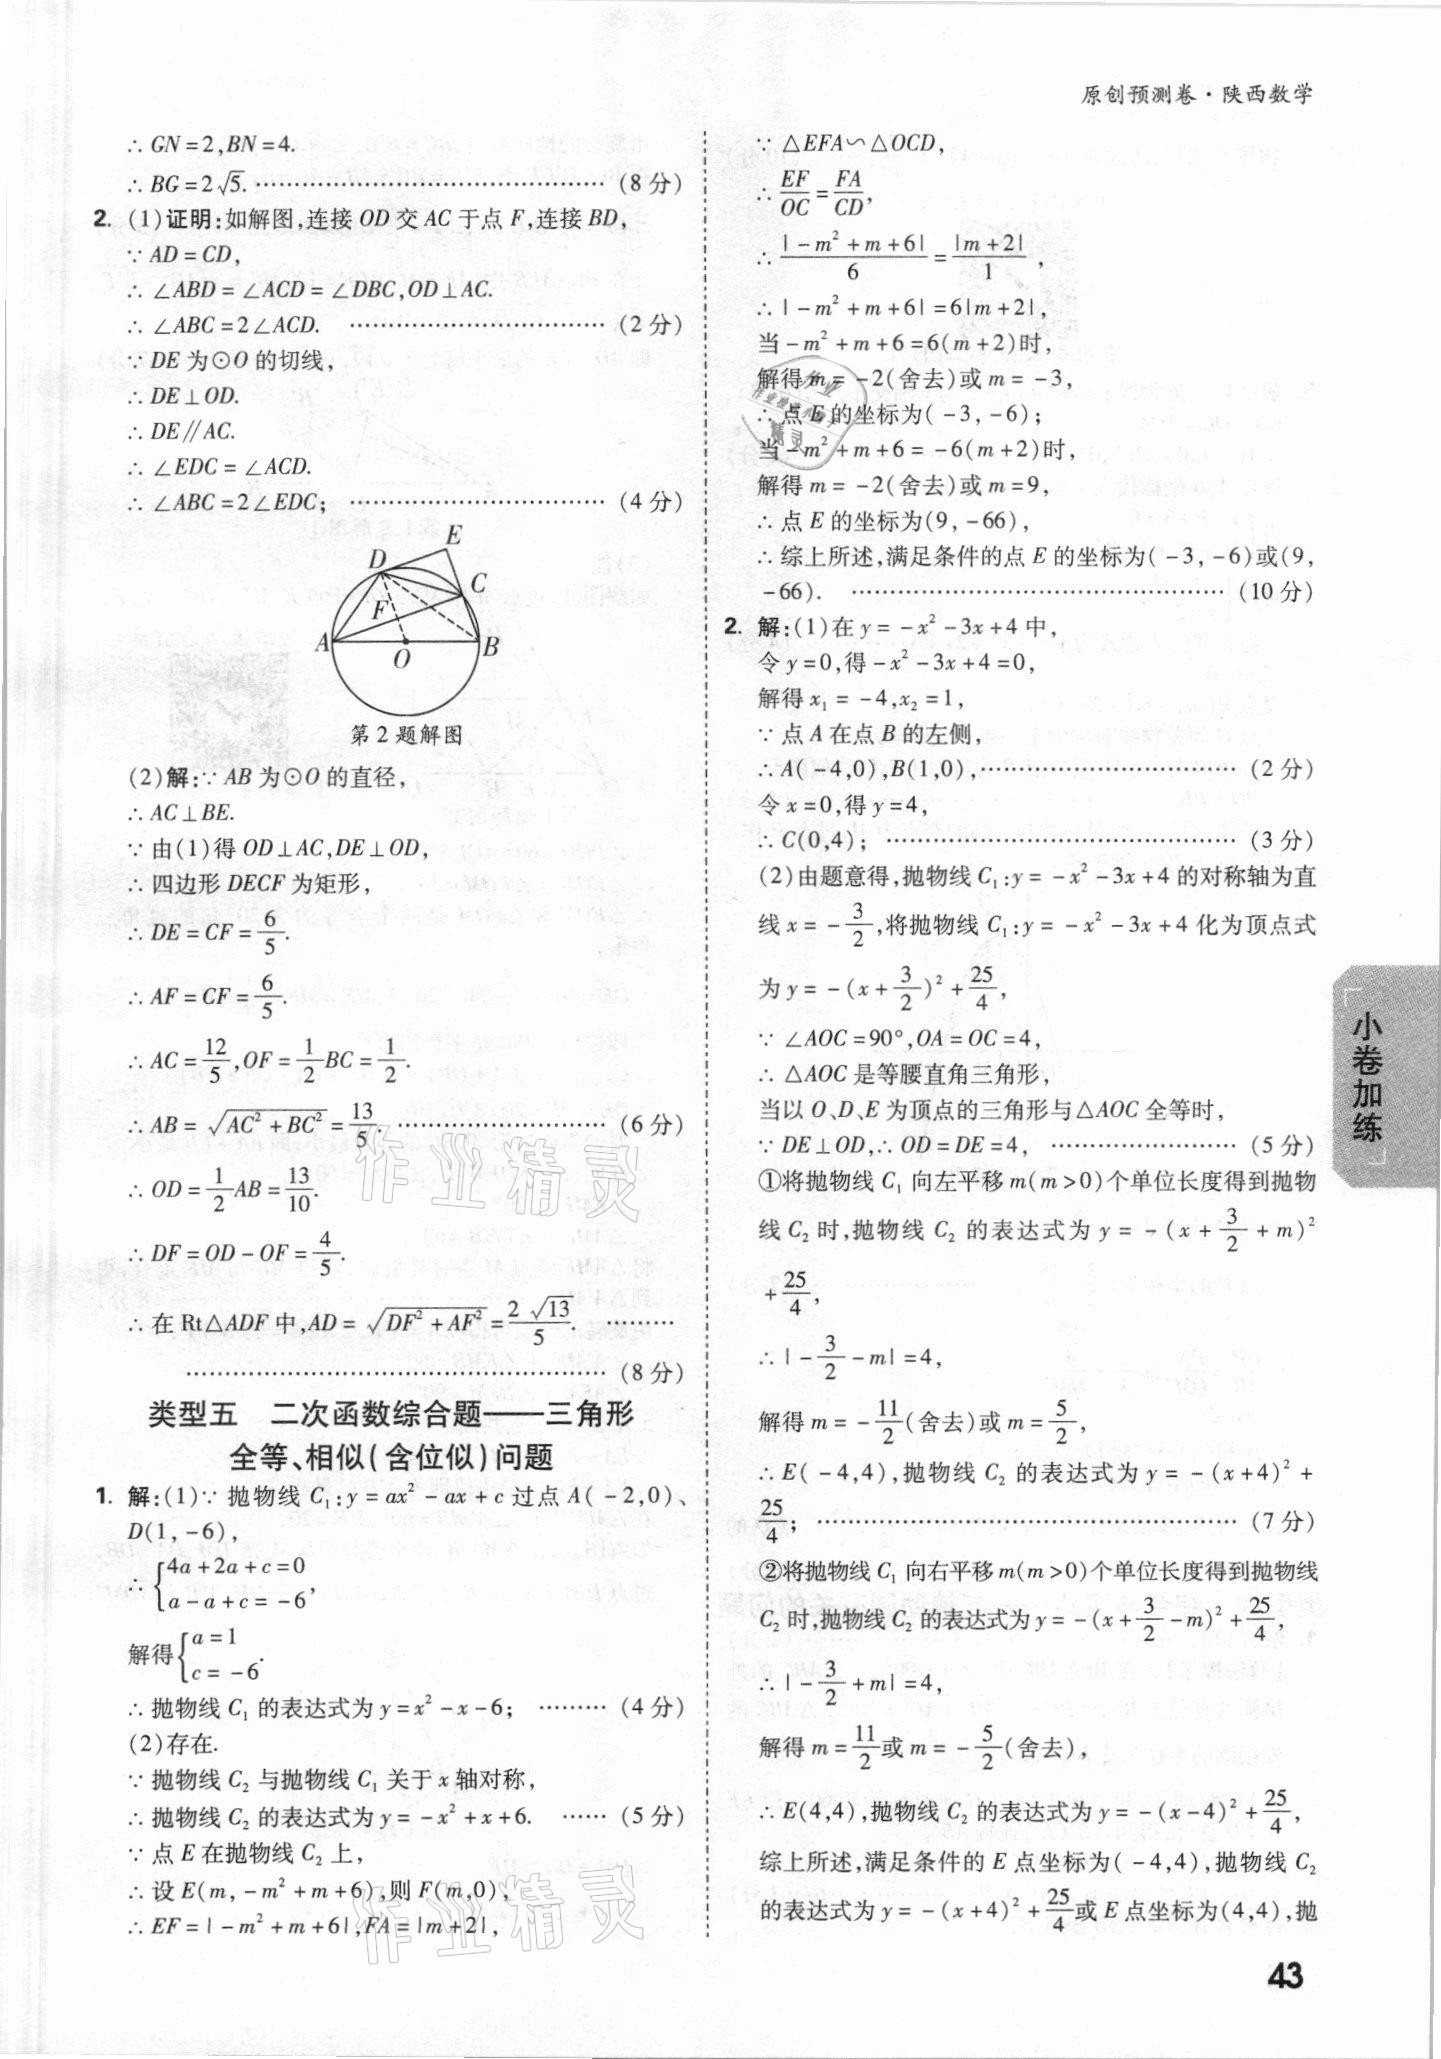 原创预测卷·陕西数学
∴ GN=2,BN=4.
∴ BG=2√5.……………………………………(8分)
2. (1)证明:如解图,连接OD交AC于点F,连接BD,
∵ AD=CD,
∴ ∠ABD=∠ACD=∠DBC,OD⊥AC.
∴ ∠ABC=2∠ACD. ……………………………(2分)
∵ DE为⊙O的切线,
∴ DE⊥OD.
∴ DE∥AC.
∴ ∠EDC=∠ACD.
∴ ∠ABC=2∠EDC; ……………………………(4分)
E
D
C
F
A
O
B
第2题解图
(2)解:∵ AB为⊙O的直径,
∴ AC⊥BE.
∵ 由(1)得OD⊥AC,DE⊥OD,
∴ 四边形DECF为矩形,
∴ DE=CF=6/5.
∴ AF=CF=6/5.
∴ AC=12/5,OF=1/2BC=1/2.
∴ AB=√(AC²+BC²)=13/5. ……………………(6分)
∴ OD=1/2AB=13/10.
∴ DF=OD-OF=4/5.
∴ 在Rt△ADF中,AD=√(DF²+AF²)=2√13/5. ………
……………………………………………(8分)
类型五 二次函数综合题——三角形
全等、相似(含位似)问题
1. 解:(1)∵ 抛物线C₁:y=ax²-ax+c过点A(-2,0)、
D(1,-6),
∴ {4a+2a+c=0
a-a+c=-6,
解得{a=1
c=-6.
∴ 抛物线C₁的表达式为y=x²-x-6; ………(4分)
(2)存在.
∵ 抛物线C₂与抛物线C₁关于x轴对称,
∴ 抛物线C₂的表达式为y=-x²+x+6. ……(5分)
∵ 点E在抛物线C₂上,
∴ 设E(m,-m²+m+6),则F(m,0),
∴ EF=|-m²+m+6|,FA=|m+2|,
∵ △EFA∽△OCD,
∴ EF/OC=FA/CD,
∴ |-m²+m+6|/6=|m+2|/1,
∴ |-m²+m+6|=6|m+2|,
当-m²+m+6=6(m+2)时,
解得m=-2(舍去)或m=-3,
∴ 点E的坐标为(-3,-6);
当-m²+m+6=-6(m+2)时,
解得m=-2(舍去)或m=9,
∴ 点E的坐标为(9,-66),
∴ 综上所述,满足条件的点E的坐标为(-3,-6)或(9,
-66). ……………………………………………(10分)
2. 解:(1)在y=-x²-3x+4中,
令y=0,得-x²-3x+4=0,
解得x₁=-4,x₂=1,
∵ 点A在点B的左侧,
∴ A(-4,0),B(1,0),……………………………(2分)
令x=0,得y=4,
∴ C(0,4); ………………………………………(3分)
(2)由题意得,抛物线C₁:y=-x²-3x+4的对称轴为直
线x=-3/2,将抛物线C₁:y=-x²-3x+4化为顶点式
为y=-(x+3/2)²+25/4,
∵ ∠AOC=90°,OA=OC=4,
∴ △AOC是等腰直角三角形,
当以O、D、E为顶点的三角形与△AOC全等时,
∵ DE⊥OD,∴ OD=DE=4, ……………………(5分)
①将抛物线C₁向左平移m(m>0)个单位长度得到抛物
线C₂时,抛物线C₂的表达式为y=-(x+3/2+m)²
+25/4,
∴ |-3/2-m|=4,
解得m=-11/2(舍去)或m=5/2,
∴ E(-4,4),抛物线C₂的表达式为y=-(x+4)²+
25/4; ………………………………………………(7分)
②将抛物线C₁向右平移m(m>0)个单位长度得到抛物线
C₂时,抛物线C₂的表达式为y=-(x+3/2-m)²+25/4,
∴ |-3/2+m|=4,
解得m=11/2或m=-5/2(舍去),
∴ E(4,4),抛物线C₂的表达式为y=-(x-4)²+25/4,
综上所述,满足条件的E点坐标为(-4,4),抛物线C₂
的表达式为y=-(x+4)²+25/4或E点坐标为(4,4),抛
小卷加练
43
作业精灵
作业精灵